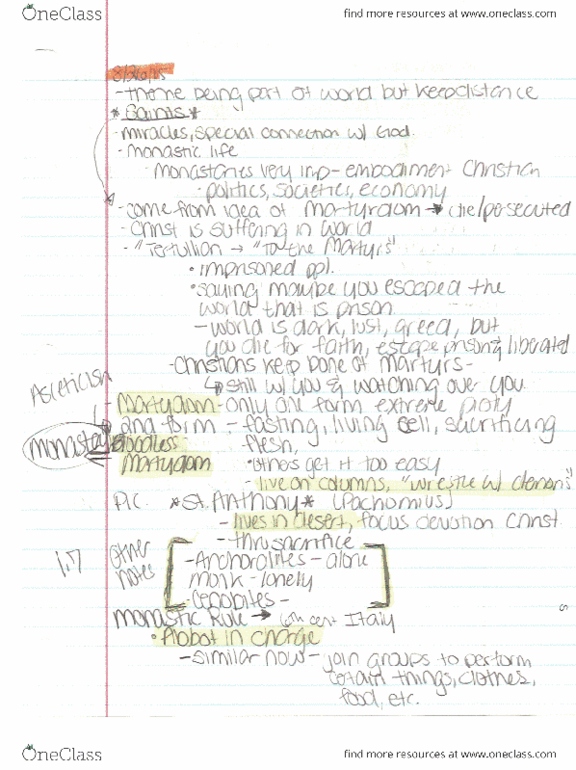 OneClass
find more resources at www.oneclass.com
- theme being part of world but keep distance
* Saints *
- miracles, special connection w/ God.
- monastic life
· monastaries very imp - embodiment Christian
· politics, societies, economy
- come from idea of martyrdom → die/persecuted
- Christ is suffering in world
- "Tertullion → "To the Martyrs"
• imprisoned ppl.
• saying maybe you escaped the
world that is prison
- world is dark, lust, greed, but
you die for faith, escape prison & liberated
- Christians keep bone of martyrs -
↳ still w/ you & watching over you
Asceticism
- Martydom - only one form extreme piety
- 2nd form - fasting, living cell, sacrificing
Bloodless flesh,
Martyrdom • others get it too easy
- live on columns, "wrestle w/ demons"
Pic. * St. Anthony * (Pachomius)
- lives in desert, focus devotion Christ
- thru sacrifice
1.7 Other notes
- Anchoralites - alone
monk - lonely
- Cenobites -
Monastic Rule → 6th cent Italy
• Abbot in charge
- similar now - join groups to perform
things, clothes,
food, etc.
OneClass
find more resources at www.oneclass.com